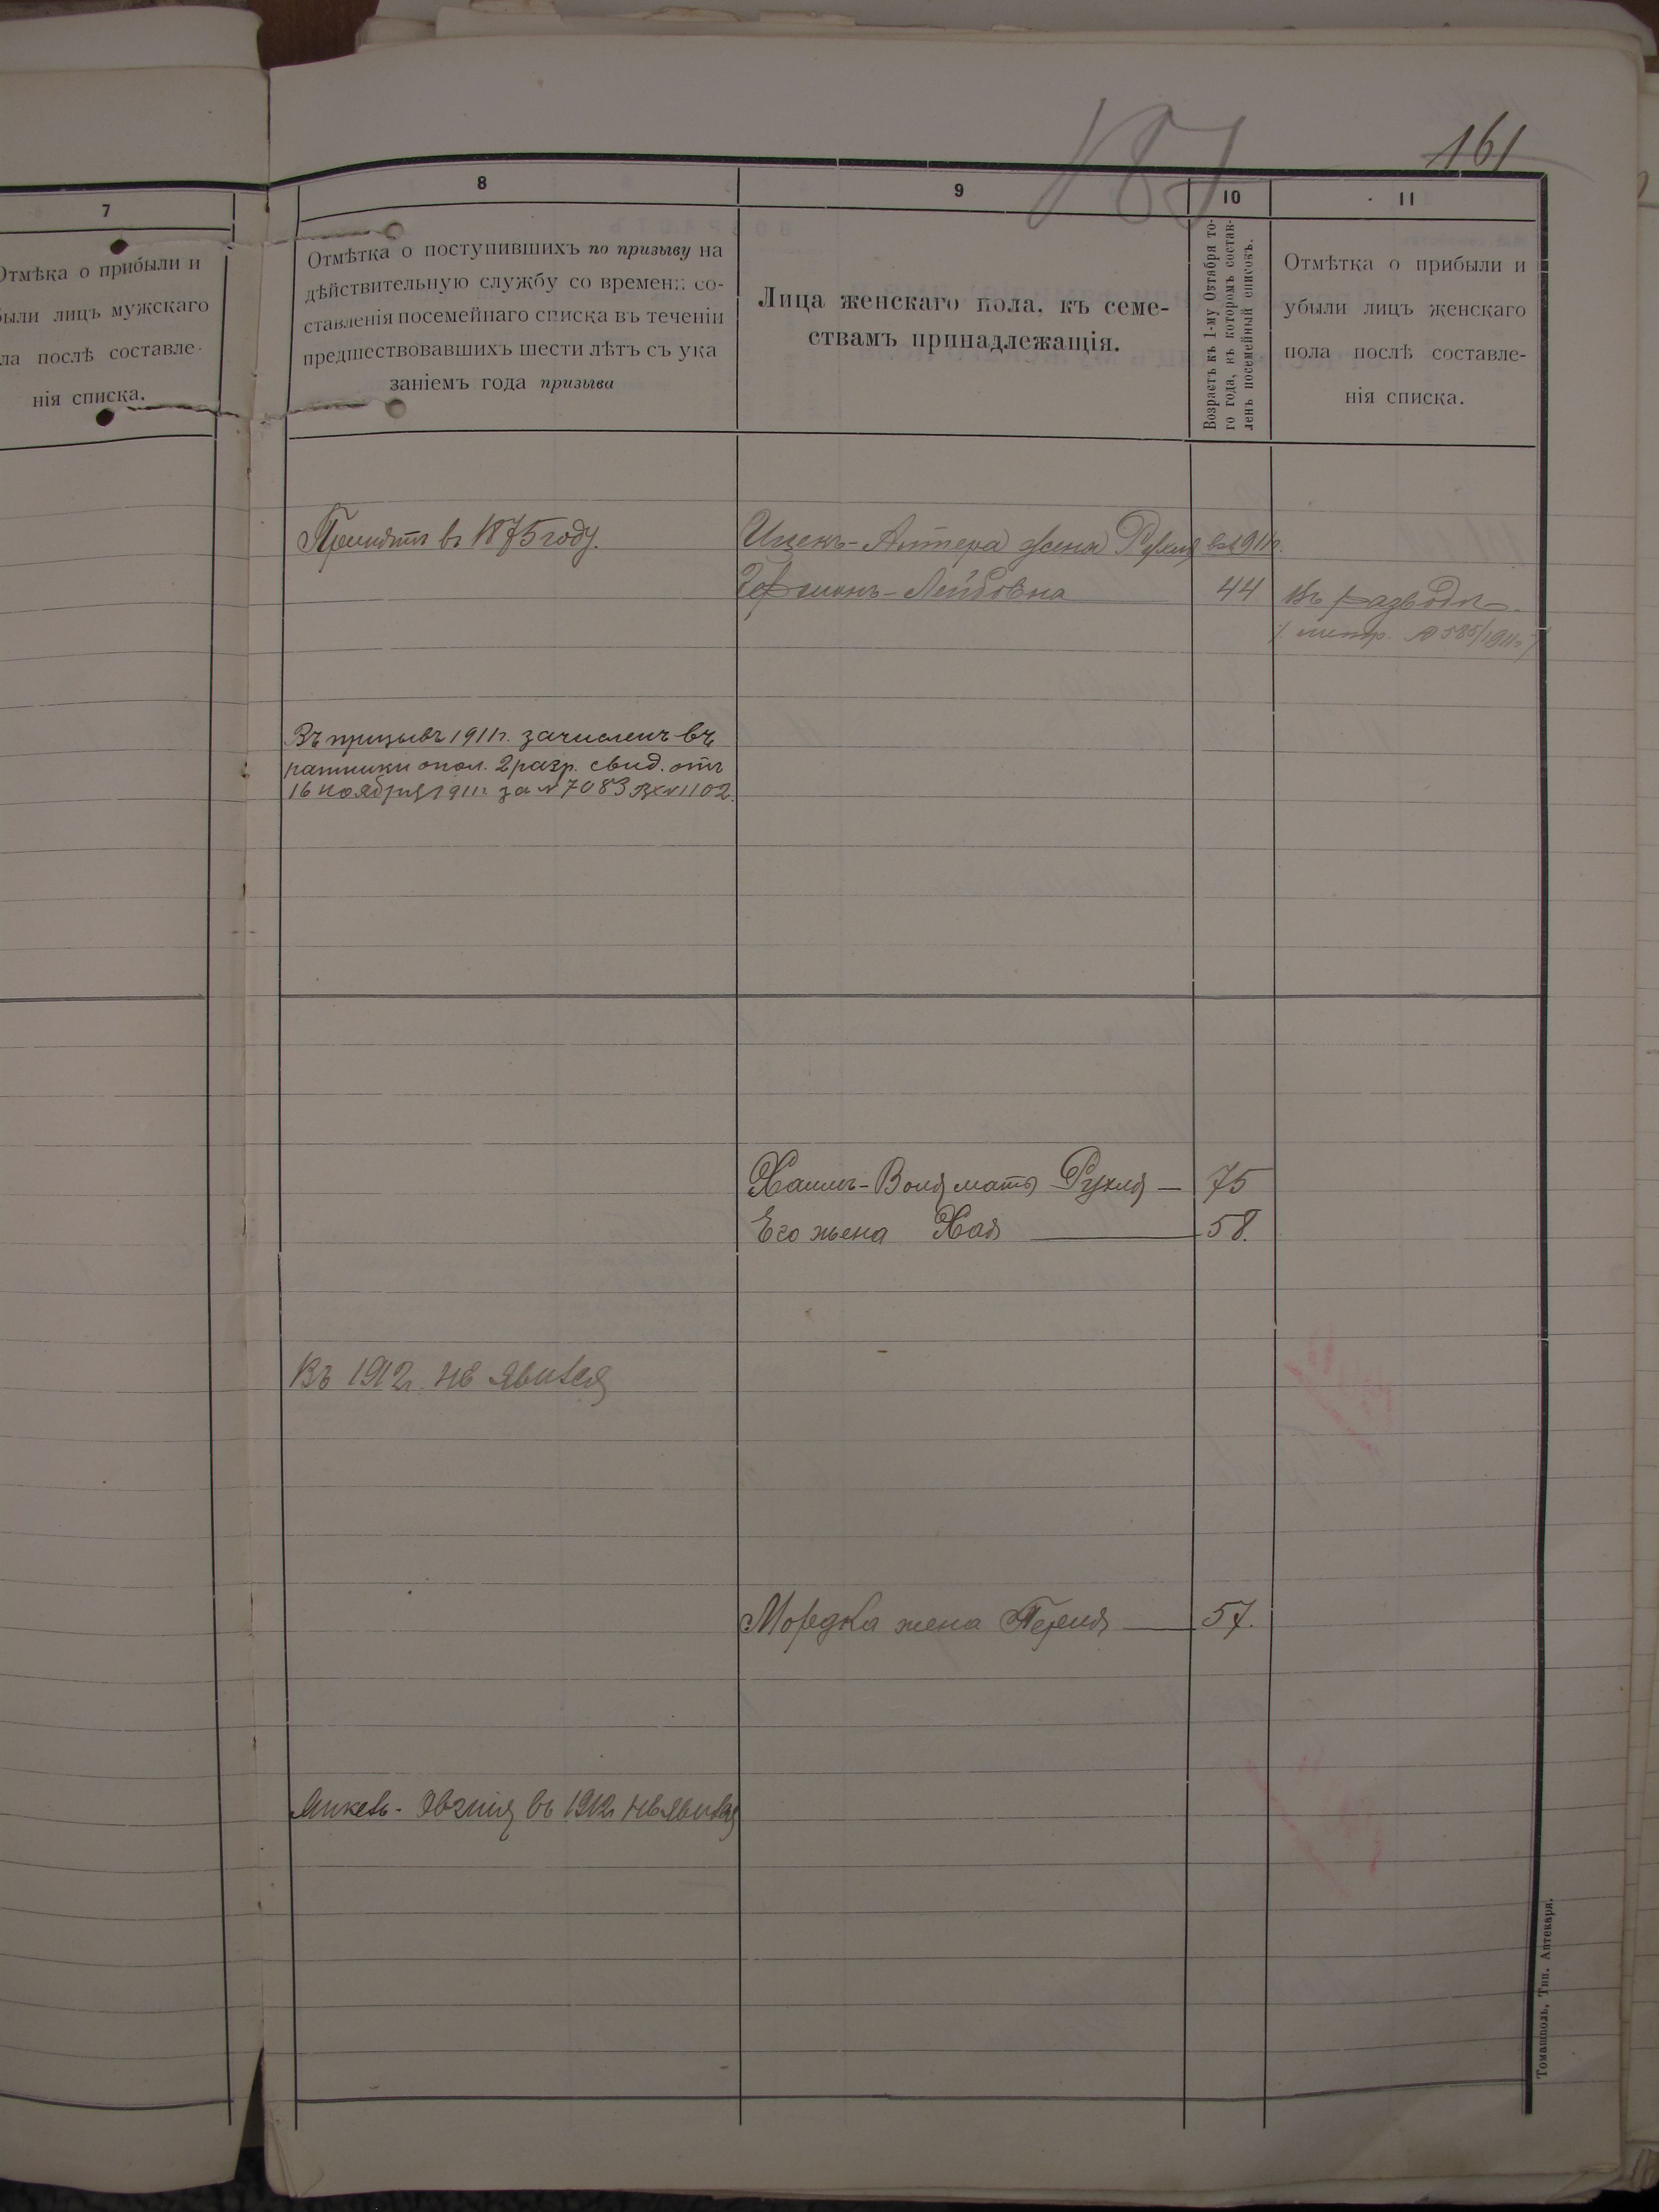 187
161
7
Отмѣка о прибыли и
были лицъ мужскаго
ла послѣ составле-
нія списка.
8
Отмѣтка о поступившихъ по призыву на
дѣйствительную службу со времени со-
ставленія посемейнаго списка въ теченіи
предшествовавшихъ шести лѣтъ съ ука
заніемъ года призыва
9
Лица женскаго пола, къ семе-
ствамъ принадлежащія.
10
Возрастъ къ 1-му Октября то-
го года, въ которомъ состав-
ленъ посемейный списокъ.
11
Отмѣтка о прибыли и
убыли лицъ женскаго
пола послѣ составле-
нія списка.
Принятъ въ 1875 году.
Ицекъ-Антера жена Рухля въ 1911г.
Лейбовна 44
въ разводѣ
№ 585/1911г
Въ призывъ 1911г. зачисленъ въ
ратники опол. 2 разр. свид. отъ
16 ноября 1911г. за № 7083 вх № 1102.
Хаимъ-Воля мать Рухля — 75
Его жена Хая 58.
Въ 1912г. не явился
Мордка жена Перля 57.
Янкель- въ 1912г не явился
Томашполь, Тип. Аптекаря.